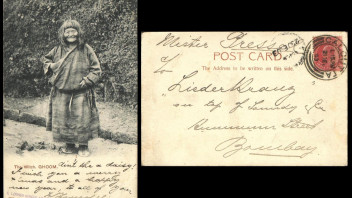 The Witch. GHOOM. Isn't she a daisy!
I wish you a merry
xmas and a happy
new year, to all of you
POST CARD.
The Address to be written on this side.
Mister Press
c/o Liederkranz
on top of &
Street
Bombay